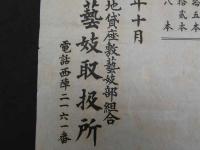 五本
拾貳本
八本
年十月
地貸座敷藝妓部組合
藝妓取扱所
電話西陣二一六一番